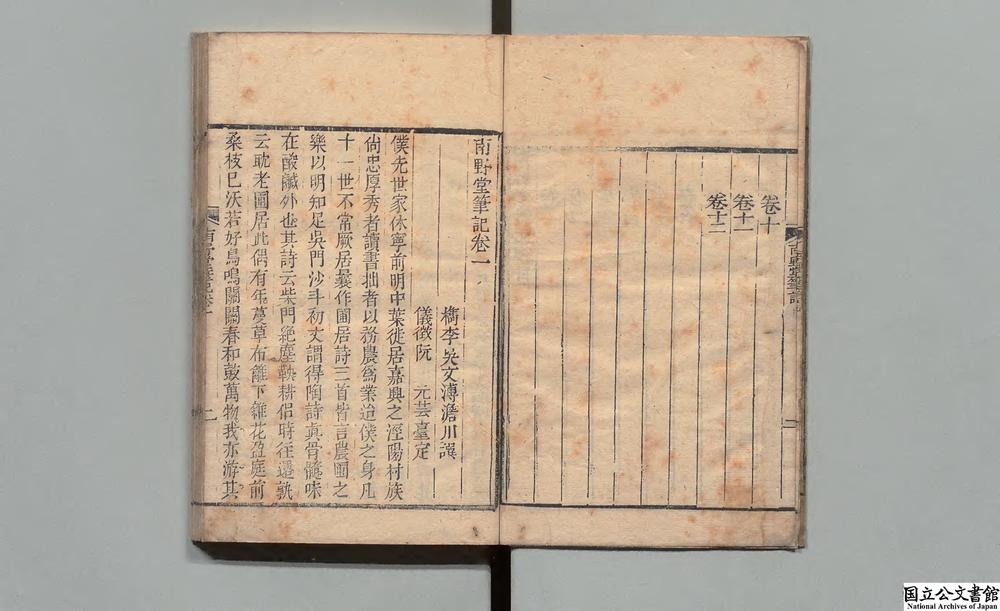 卷十
卷十一
卷十二
南野堂筆記
南野堂筆記卷一
檇李吳文溥澹川譔
儀徵阮　元芸臺定
僕先世家休寧前明中葉徙居嘉興之涇陽村族
尙忠厚秀者讀書拙者以務農爲業迨僕之身凡
十一世不常厥居曩作圃居詩三首皆言農圃之
樂以明知足吳門沙斗初丈謂得陶詩真骨髓味
在酸鹹外也其詩云柴門絶塵鞅耕侶時往還孰
云耽老圃居此偶有年蔓草布籬下雜花盈庭前
桑枝已沃若好鳥鳴關關春和鼓萬物我亦游其
南野堂筆記卷一
一
国立公文書館
National Archives of Japan